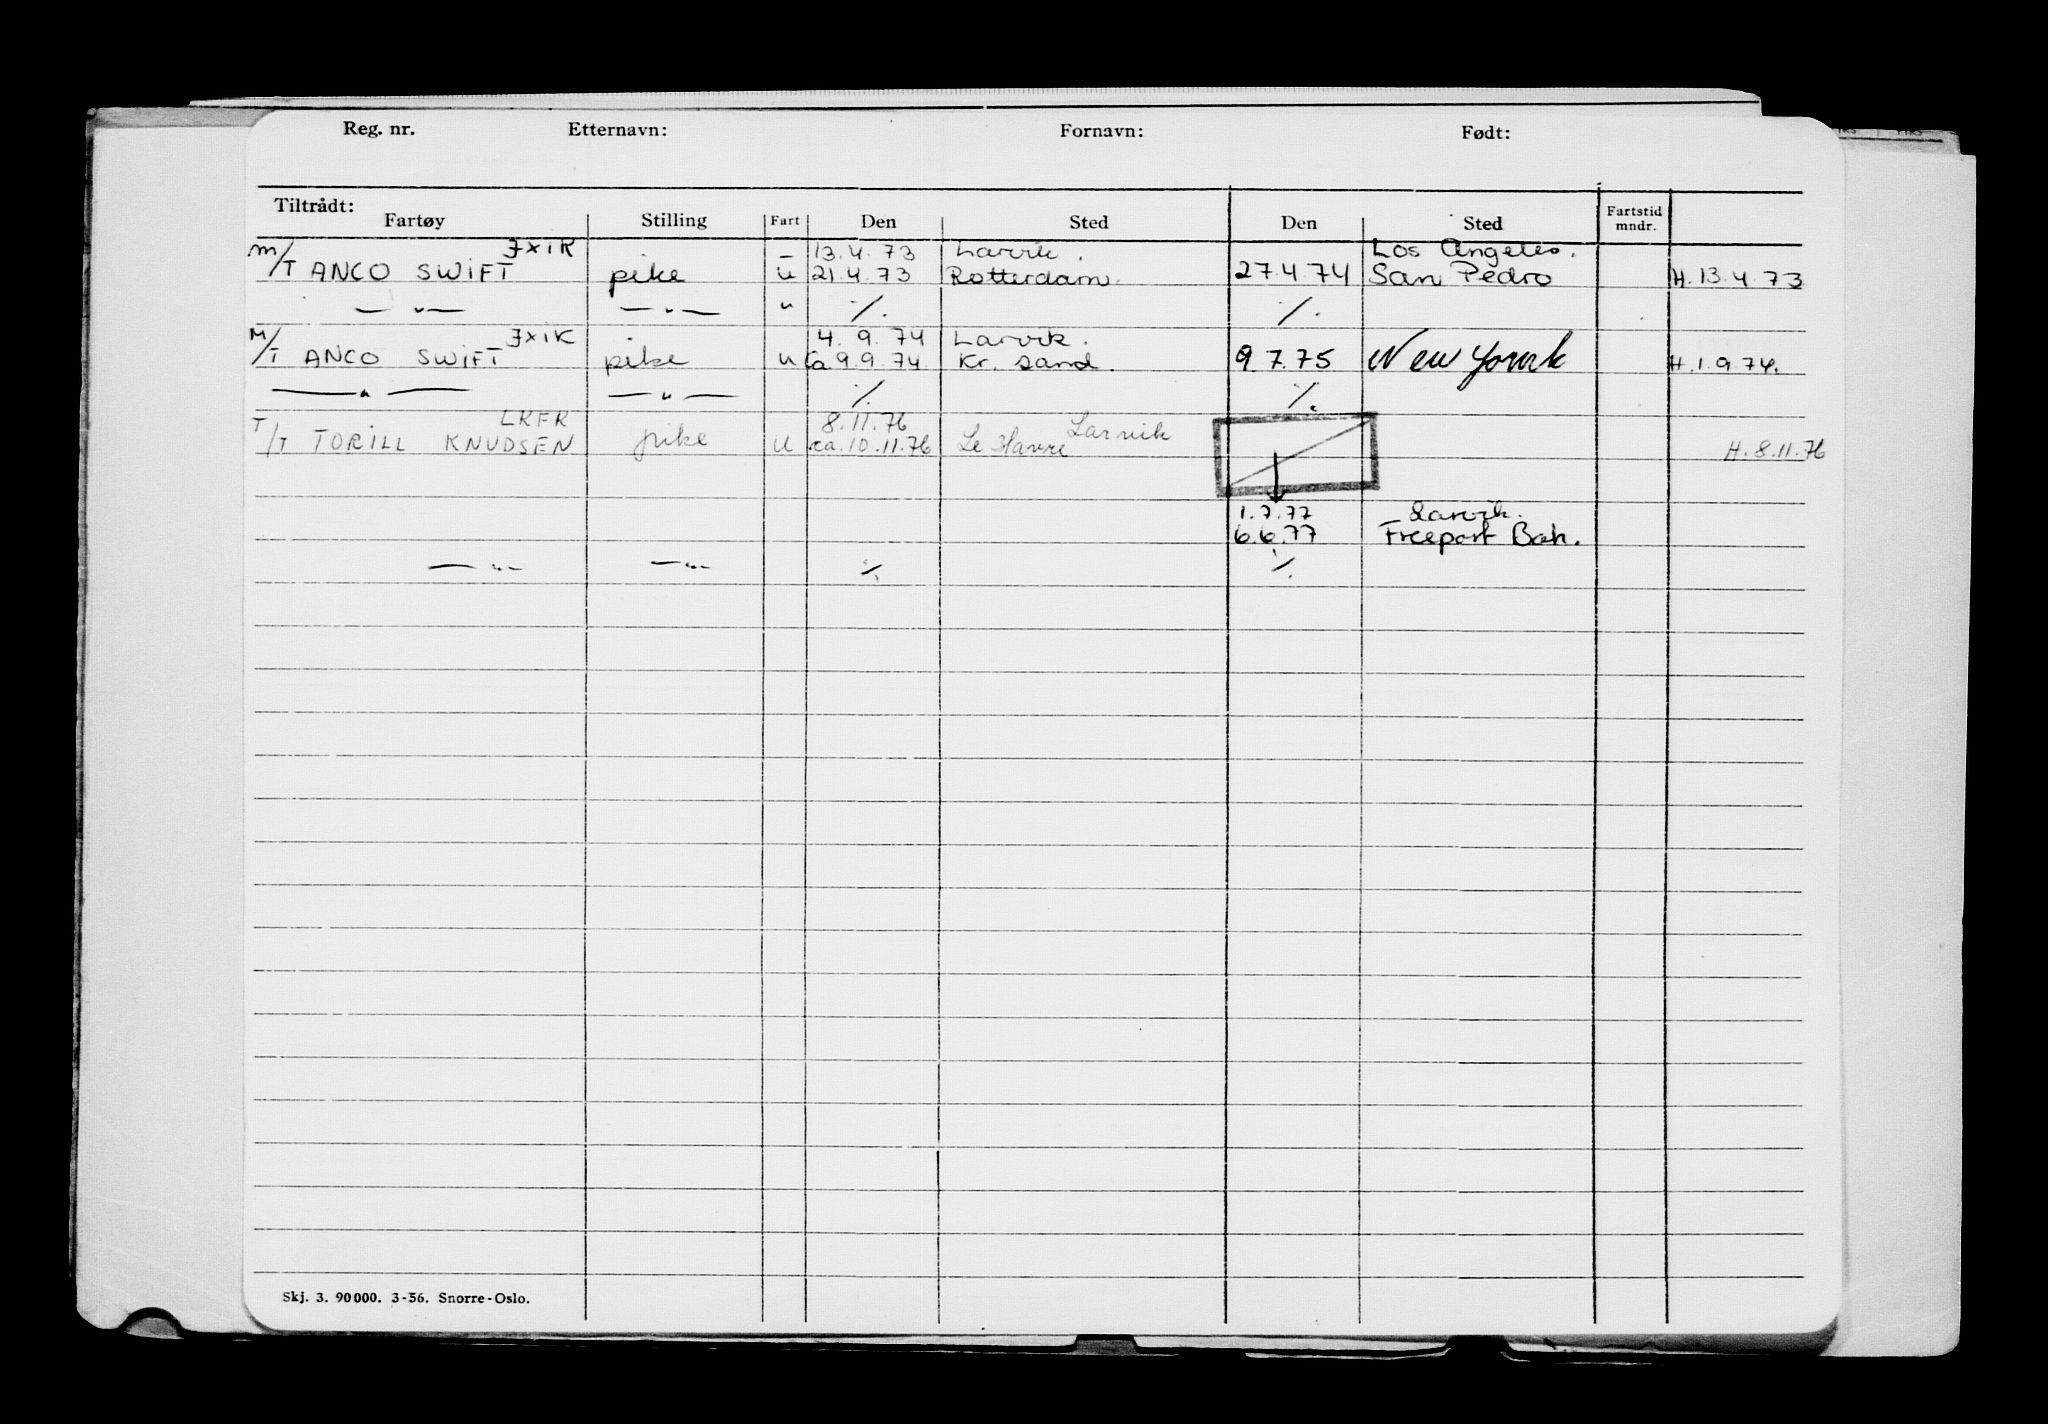 Reg. nr. Etternavn: Fornavn: Født:
Tiltrådt:
Fartøy Stilling Fart Den Sted Den Sted Fartstid mndr.
JXIK – 13.4.73 Larvik. Los Angeles.
M/T ANCO SWIFT pike u 21.4.73 Rotterdam. 27.4.74 San Pedro H. 13.4.73
— " — — " — " ./. ./.
JXIK 4.9.74 Larvik.
M/T ANCO SWIFT pike u ca. 9.9.74. Kr. sand. 9.7.75 New York H. 1.9.74.
— " — — " — ./. ./.
LKFR 8.11.76 Larvik
T/T TORILL KNUDSEN pike u ca. 10.11.76 Le Havre H. 8.11.76
1.7.77 Larvik.
6.6.77 Freeport Bah.
— " — — " — ./. ./.
Skj. 3. 90000. 3-56. Snorre-Oslo.